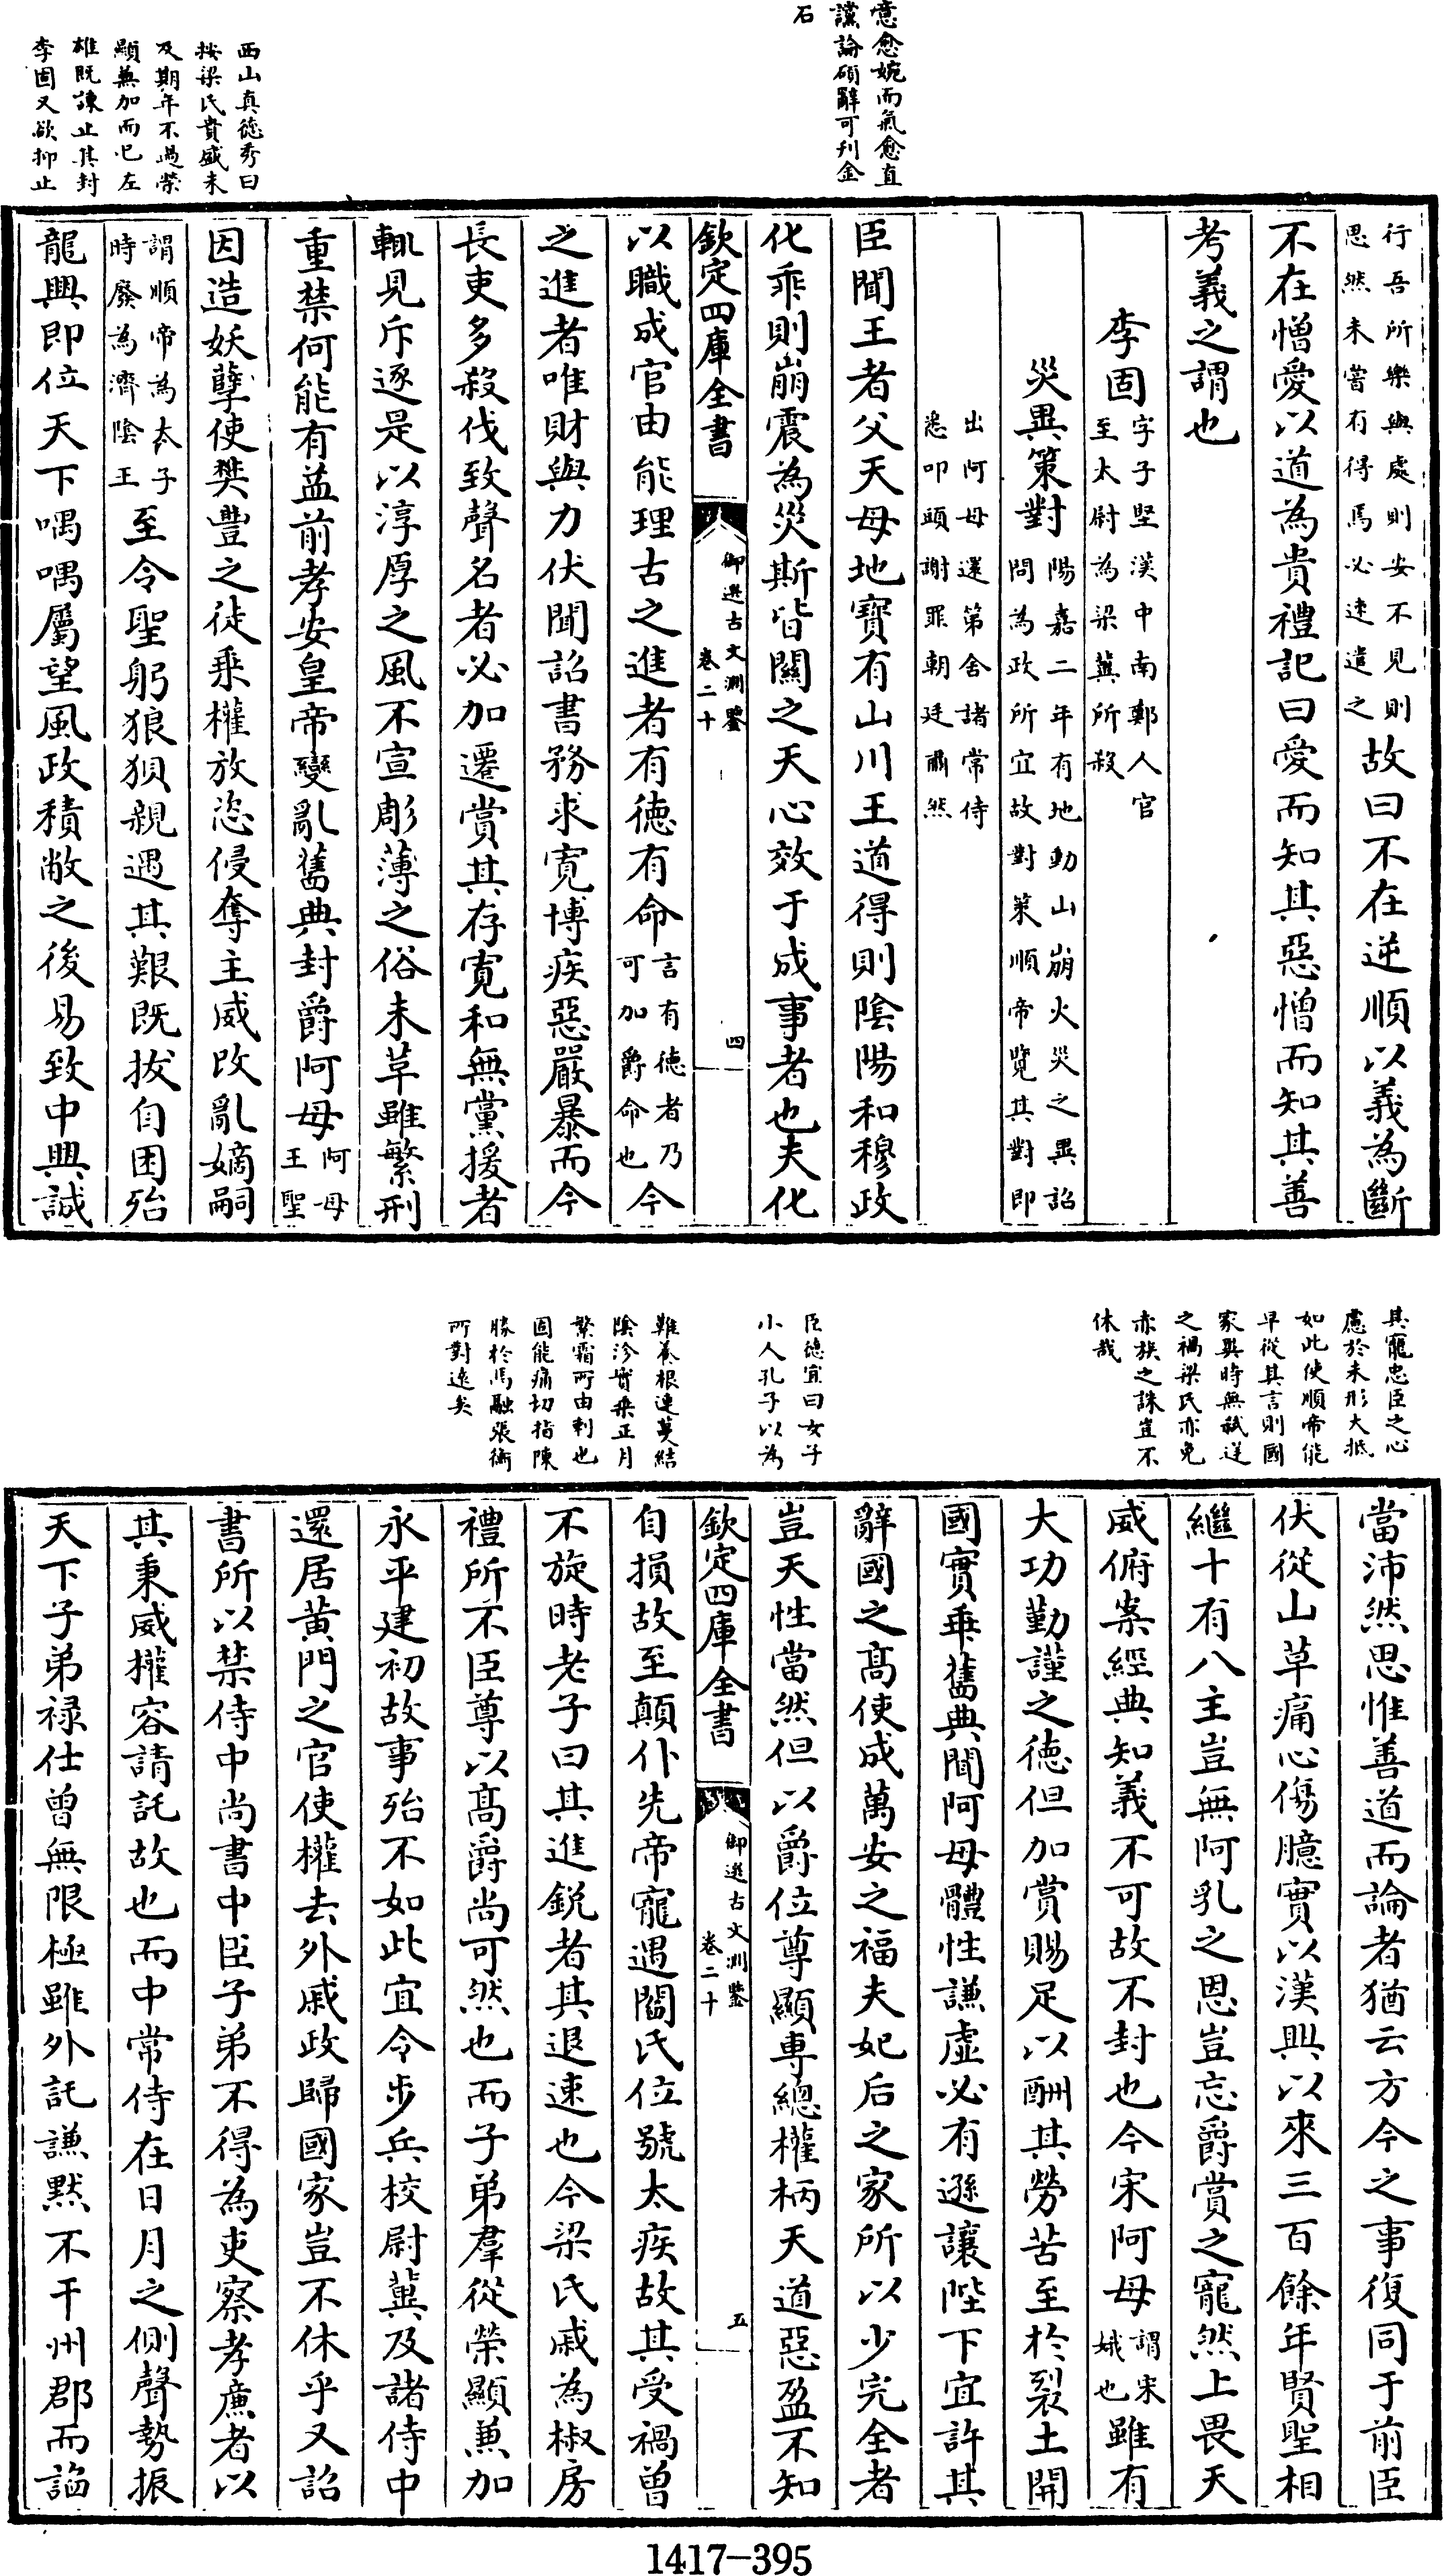 意愈婉而氣愈直
讜論碩辭可刋金
石
西山真徳秀曰
按梁氏貴盛未
及期年不過榮
顯兼加而已左
雄既諫止其封
李固又欲抑止
行吾所樂與處則安不見則
思然未嘗有得焉必速遣之
故曰不在逆順以義為斷
不在憎愛以道為貴禮記曰愛而知其惡憎而知其善
考義之謂也
李固
字子堅漢中南鄭人官
至太尉為梁冀所殺
災異策對
陽嘉二年有地動山崩火災之異詔
問為政所宜故對策順帝覽其對即
出阿母還第舍諸常侍
悉叩頭謝罪朝廷肅然
臣聞王者父天母地寳有山川王道得則陰陽和穆政
化乖則崩震為災斯皆闗之天心效于成事者也夫化
欽定四庫全書
御選古文淵鑒
卷二十
四
以職成官由能理古之進者有徳有命
言有徳者乃
可加爵命也
今
之進者唯財與力伏聞詔書務求寛博疾惡嚴暴而今
長吏多殺伐致聲名者必加遷賞其存寛和無黨援者
輒見斥逐是以淳厚之風不宣彫薄之俗未革雖繁刑
重禁何能有益前孝安皇帝變亂舊典封爵阿母
阿母
王聖
因造妖孽使樊豐之徒乘權放恣侵奪主威改亂嫡嗣
謂順帝為太子
時廢為濟隂王
至令聖躬狼狽親遇其艱既拔自困殆
龍興即位天下喁喁屬望風政積敝之後易致中興誠
其寵忠臣之心
慮於未形大抵
如此使順帝能
早從其言則國
家異時無弑逆
之禍梁氏亦免
赤族之誅豈不
休哉
臣徳宜曰女子
小人孔子以為
難養根連蔓結
陰沴實乗正月
繁霜所由刺也
固能痛切指陳
勝於馬融張衡
所對逺矣
當沛然思惟善道而論者猶云方今之事復同于前臣
伏從山草痛心傷臆實以漢興以來三百餘年賢聖相
繼十有八主豈無阿乳之恩豈忘爵賞之寵然上畏天
威俯案經典知義不可故不封也今宋阿母
謂宋
娥也
雖有
大功勤謹之徳但加賞賜足以酬其勞苦至於裂土開
國實乖舊典聞阿母體性謙虛必有遜讓陛下宜許其
辭國之髙使成萬安之福夫妃后之家所以少完全者
豈天性當然但以爵位尊顯專總權柄天道惡盈不知
欽定四庫全書
御選古文淵鑒
卷二十
五
自損故至顛仆先帝寵遇閻氏位號太疾故其受禍曾
不旋時老子曰其進鋭者其退速也今梁氏戚為椒房
禮所不臣尊以髙爵尚可然也而子弟羣從榮顯兼加
永平建初故事殆不如此宜令步兵校尉冀及諸侍中
還居黄門之官使權去外戚政歸國家豈不休乎又詔
書所以禁侍中尚書中臣子弟不得為吏察孝亷者以
其秉威權容請託故也而中常侍在日月之側聲勢振
天下子弟禄仕曾無限極雖外託謙黙不干州郡而諂
1417-395